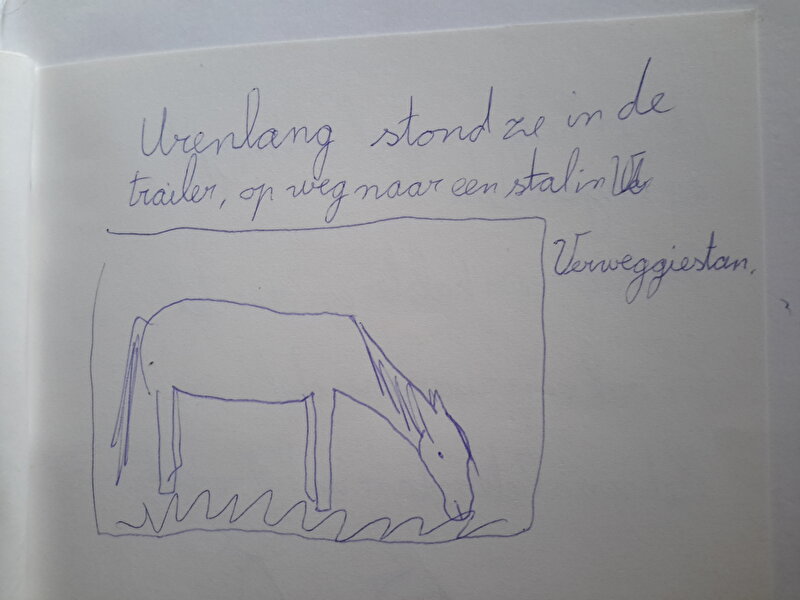 Urenlang stond ze in de
trailer, op weg naar een stal in
Verweggiestan.